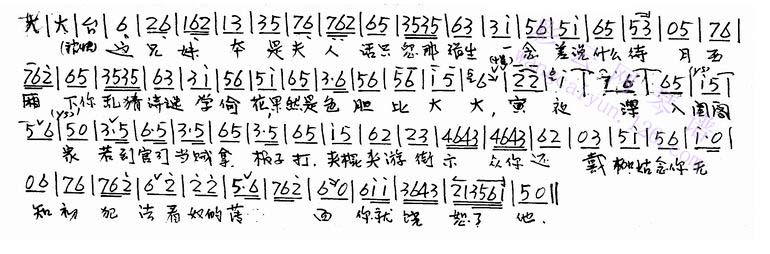 大|大|台|6|26|162|13|35|76|762|65|3535|63|3i|56|5i|65|53|05|76|
这兄妹本是夫人话只怨那张生一念差说什么待月西
762|65|3535|63|3i|56|5i|65|3·6|56|56|i5|6|22|i|76|65|i5|
厢下你乱猜诗谜学偷花果然是色胆比天大,寅夜深入闺阁
56|50|3·5|6·5|3·5|65|3·5|65|i5|62|23|4643|4643|62|03|5i|56|i·0|
家若到官司当贼拿板子打,夹棍夹游街示众你还戴枷姑念你无
06|76|762|62|22|5·6|762|60|6ii|3643|213561|50‖
知初犯法看奴的薄面你就饶恕了他.